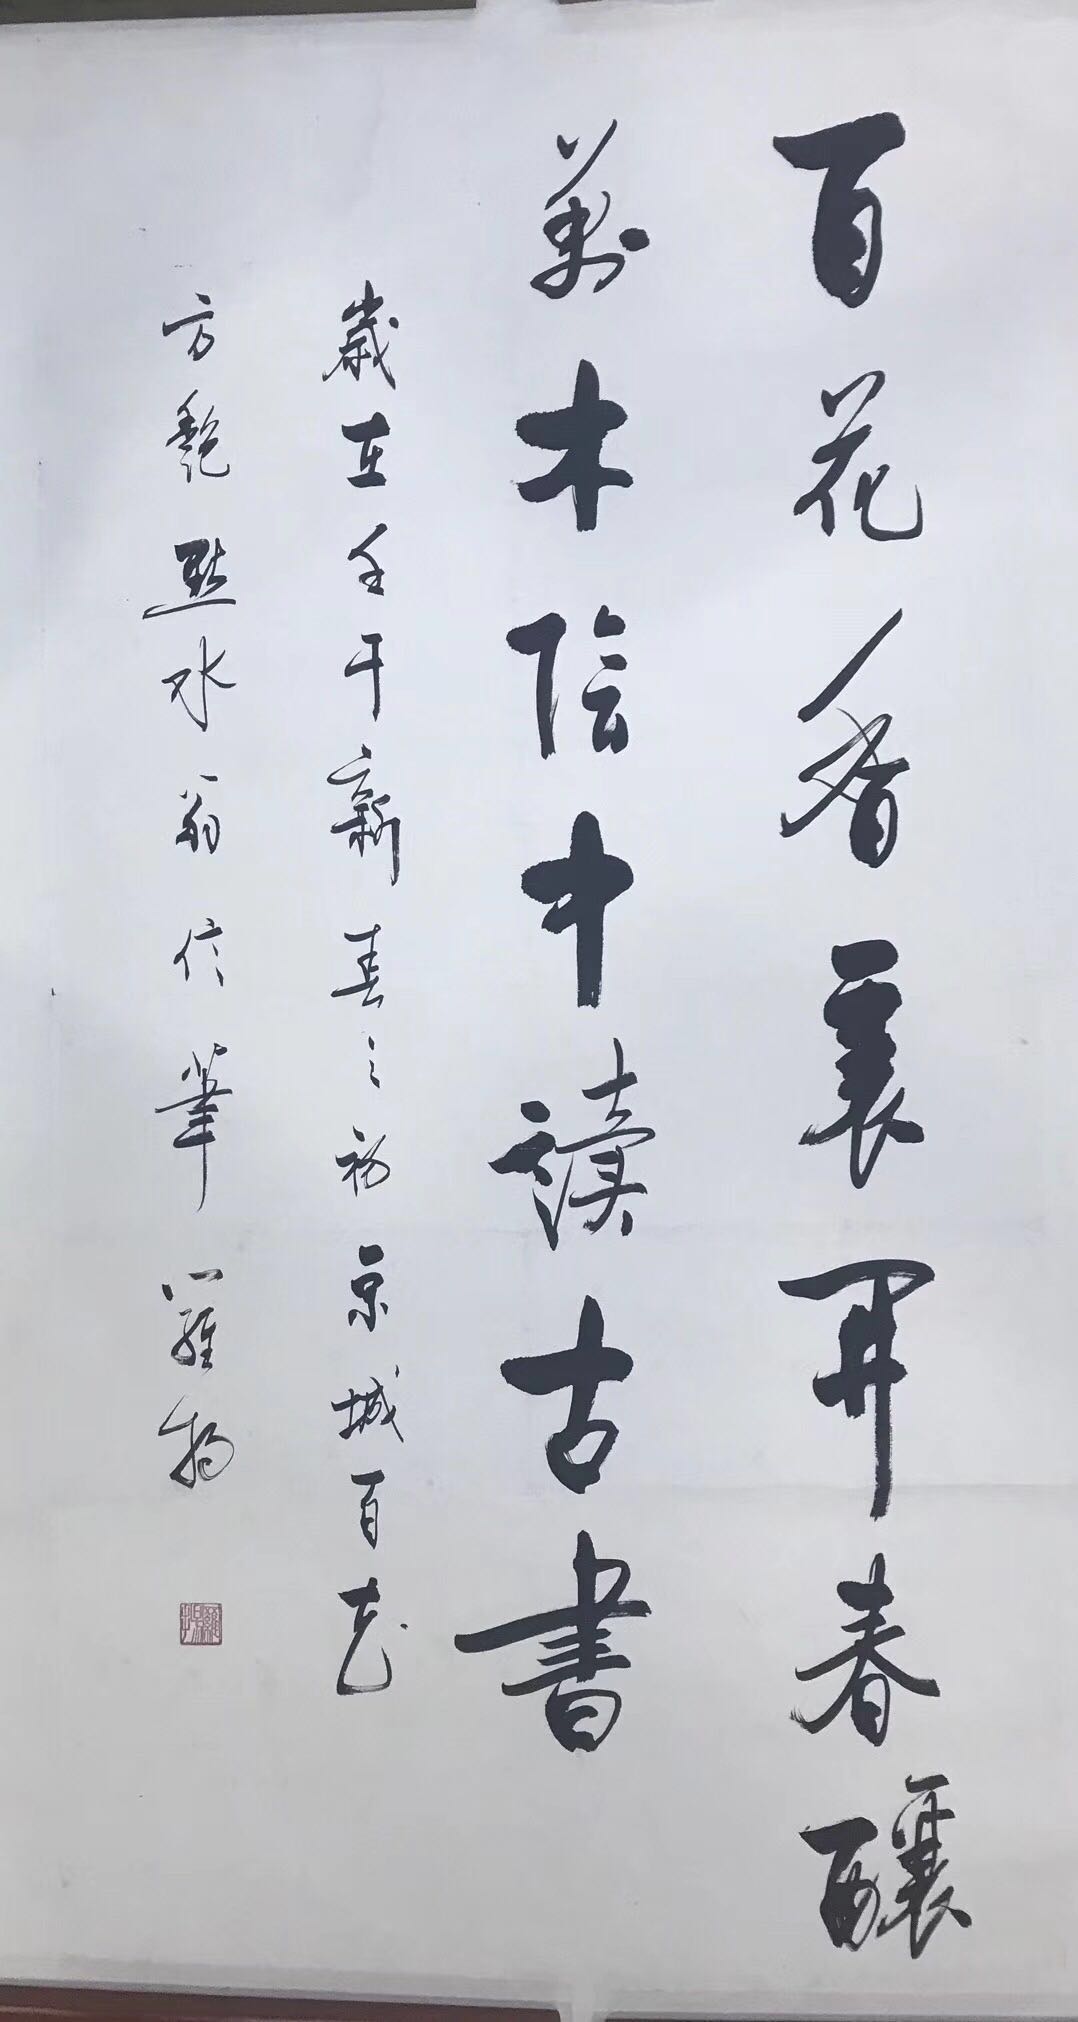 百花香裏開春釀
萬木陰中讀古書
歲在壬午新春之初京城百花
方艷點水翁信筆羅揚